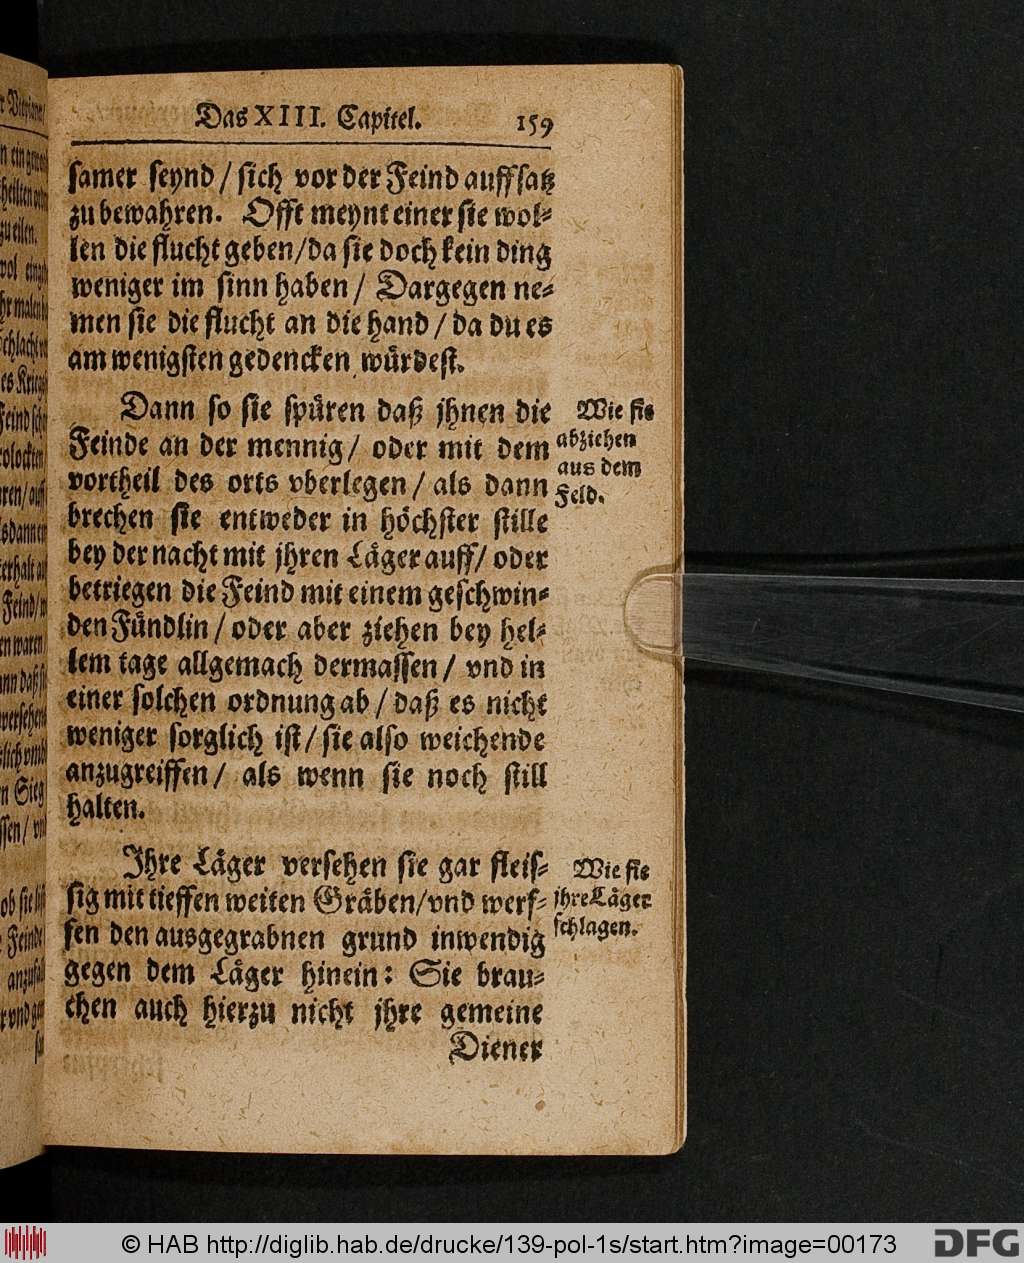 Das XIII. Capitel. 159
samer seynd / sich vor der Feind auffsatz
zu bewahren. Offt meynt einer sie wol-
len die flucht geben/da sie doch kein ding
weniger im sinn haben / Dargegen ne-
men sie die flucht an die hand / da du es
am wenigsten gedencken würdest.
Dann so sie spüren daß jhnen die
Feinde an der mennig / oder mit dem
vortheil des orts vberlegen / als dann
brechen sie entweder in höchster stille
bey der nacht mit jhren Läger auff/ oder
betriegen die Feind mit einem geschwin-
den Fündlin / oder aber ziehen bey hel-
lem tage allgemach dermassen / vnd in
einer solchen ordnung ab / daß es nicht
weniger sorglich ist / sie also weichende
anzugreiffen / als wenn sie noch still
halten.
Wie sie
abziehen
aus dem
Feld.
Ihre Läger versehen sie gar fleis-
sig mit tieffen weiten Gräben/vnd werf-
fen den ausgegrabnen grund inwendig
gegen dem Läger hinein: Sie brau-
chen auch hierzu nicht jhre gemeine
Diener
Wie sie
jhre Läger
schlagen.
© HAB http://diglib.hab.de/drucke/139-pol-1s/start.htm?image=00173
DFG